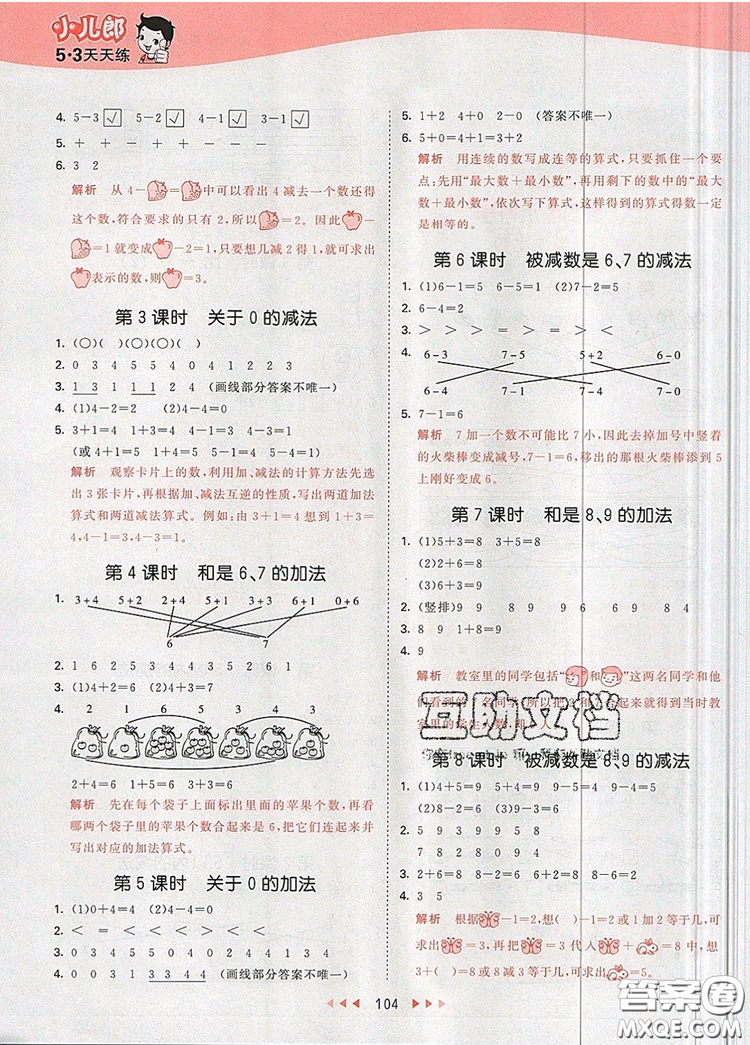 小儿郎
5·3天天练
4. 5－3☑ 5－2☑ 4－1☑ 3－1☑
5. ＋ ＋ － － ＋ －
6. 3 2
解析 从4－＝中可以看出4减去一个数还得
这个数,符合要求的只有2,所以＝2。因此
－＝1就变成－2＝1,只要想几减2得1,就可求出
表示的数,则＝3。
第3课时 关于0的减法
1. (○)( )(○)(○)( )
2. 0 3 4 5 5 4 0 4 1 2 2 3
3. 1 3 1 1 1 2 4 (画线部分答案不唯一)
4. (1)4－2＝2 (2)4－4＝0
5. 3＋1＝4 1＋3＝4 4－1＝3 4－3＝1
(或4＋1＝5 1＋4＝5 5－1＝4 5－4＝1)
解析 观察卡片上的数,利用加、减法的计算方法先选
出3张卡片,再根据加、减法互逆的性质,写出两道加法
算式和两道减法算式。例如:由3＋1＝4想到1＋3＝
4,4－1＝3,4－3＝1。
第4课时 和是6、7的加法
1. 3＋4 5＋2 2＋4 1＋5 3＋3 6＋1 0＋6
6 7
2. 1 6 2 5 3 4 1 5 2 4 3 3
3. (1)4＋2＝6 (2)4＋3＝7
4. 2 1 5 3 4 3
2＋4＝6 1＋5＝6 3＋3＝6
解析 先在每个袋子上面标出里面的苹果个数,再看
哪两个袋子里的苹果个数合起来是6,把它们连起来并
写出对应的加法算式。
第5课时 关于0的加法
1. (1)0＋4＝4 (2)4－4＝0
2. ＝ ＜ ＜ ＜ ＝ ＞ ＞ ＜
3. 0 2 1 3 5 4 4 5
4. 0 0 3 1 3 3 4 4 (画线部分答案不唯一)
5. 1＋2 4＋0 2－0 (答案不唯一)
6. 5＋0＝4＋1＝3＋2
解析 用连续的数写成连等的算式,只要抓住一个要
点:先用“最大数＋最小数”,再用剩下的数中的“最大
数＋最小数”,依次写下算式,这样得到的算式得数一定
是相等的。
第6课时 被减数是6、7的减法
1. (1)6－1＝5 6－5＝1 (2)7－2＝5
2. 6－4＝2
3. ＞ ＞ ＞ ＝ ＞ ＝ ＜ ＜
4. 6－3 7－5 5＋2 6－0
6－4 7－0 7－4 7－1
5. 7－1＝6
解析 7加一个数不可能比7小,因此去掉加号中竖着
的火柴棒变成减号,7－1＝6,移出的那根火柴棒添到5
上刚好变成6。
第7课时 和是8、9的加法
1. (1)5＋3＝8 3＋5＝8
(2)6＋2＝8
(3)6＋3＝9
2. (竖排)9 9 8 9 9 6 9 8 8
3. 8 9 1＋8＝9
4. 9
解析 教室里的同学包括“和”这两名同学和他
互助文档
第8课时 被减数是8、9的减法
1. (1)9－5＝4 9－4＝5
(2)8－2＝6 (3)9－3＝6
2. 5 9 3 9 9 5 8
7 8 2 8 0 9 4
3. 2＋6＝8 6＋2＝8 8－2＝6 8－6＝2
4. 3 5
解析 根据－1＝2,想( )－1＝2或1加2等于几,可
求出＝3,再把＝3代入＋＝8中,想
3＋( )＝8或8减3等于几,可求出＝5。
104
答案圈
MXQE.COM